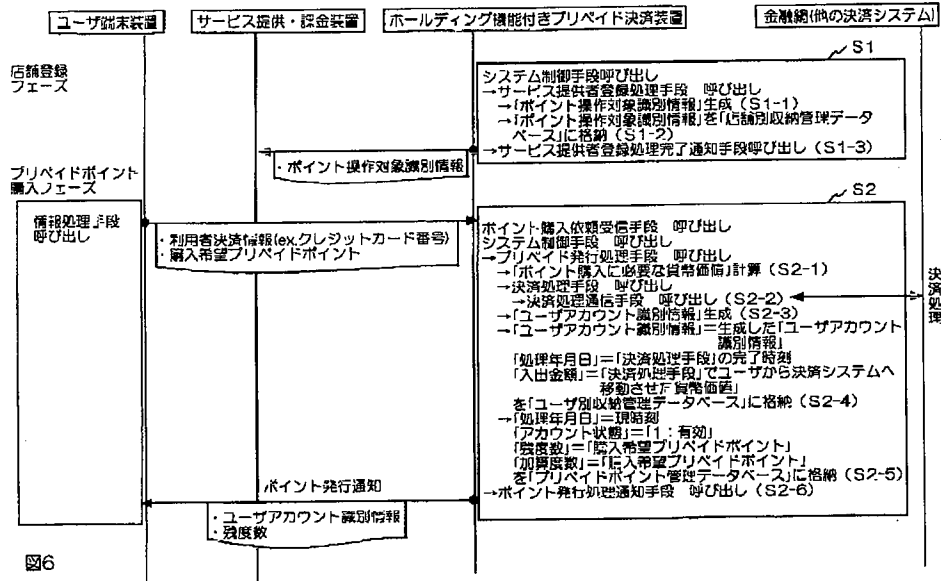 ユーザ端末装置
サービス提供・課金装置
ホールディング機能付きプリペイド決済装置
金融網(他の決済システム)
店舗登録
フェーズ
S1
システム制御手段呼び出し
→サービス提供者登録処理手段 呼び出し
→「ポイント操作対象識別情報」生成(S1-1)
→「ポイント操作対象識別情報」を「店舗別収納管理データ
ベース」に格納(S1-2)
→サービス提供者登録処理完了通知手段呼び出し(S1-3)
・ポイント操作対象識別情報
プリペイドポイント
購入フェーズ
S2
情報処理手段
呼び出し
・利用者決済情報(ex.クレジットカード番号)
・購入希望プリペイドポイント
ポイント購入依頼受信手段 呼び出し
システム制御手段 呼び出し
→プリペイド発行処理手段 呼び出し
→「ポイント購入に必要な貨幣価値」計算(S2-1)
→決済処理手段 呼び出し
→決済処理通信手段 呼び出し(S2-2)
決済処理
→「ユーザアカウント識別情報」生成(S2-3)
→「ユーザアカウント識別情報」=生成した「ユーザアカウント
識別情報」
「処理年月日」=「決済処理手段」の完了時刻
「入出金額」=「決済処理手段」でユーザから決済システムへ
移動させた貨幣価値」
を「ユーザ別収納管理データベース」に格納(S2-4)
→「処理年月日」=現時刻
「アカウント状態」=「1:有効」
「残度数」=「購入希望プリペイドポイント」
「加算度数」=「購入希望プリペイドポイント」
を「プリペイドポイント管理データベース」に格納(S2-5)
→ポイント発行処理通知手段 呼び出し(S2-6)
ポイント発行通知
・ユーザアカウント識別情報
・残度数
図6